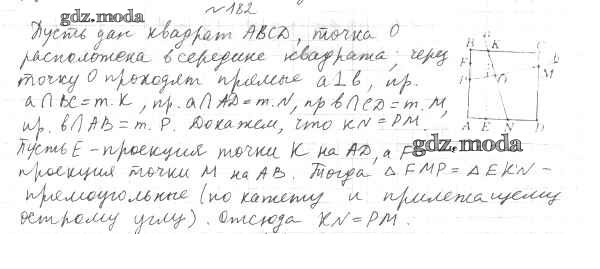 №182
gdz.moda
Пусть дан квадрат ABCD, точка O
расположена в середине квадрата, через
точку O проходят прямые a⊥b, пр.
a∩BC=т.K, пр.a∩AD=т.N, пр b∩CD=т.M,
пр. b∩AB=т.P. Докажем, что KN=PM.
Пусть E-проекция точки K на AD, а F
проекция точки M на AB. Тогда △FMP=△EKN-
прямоугольные (по катету и прилежащему
острому углу). Отсюда KN=PM.
B K C
F M
P
A E N D
gdz.moda